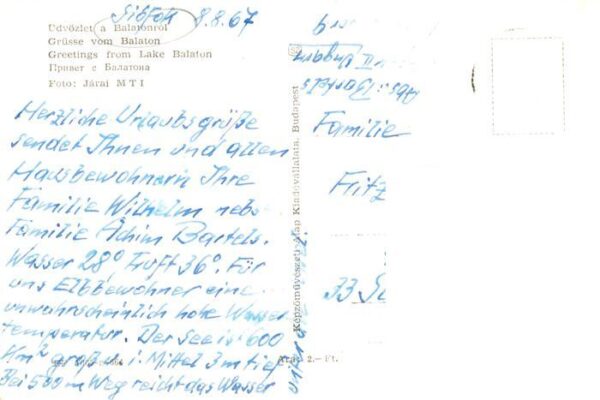 Siófok 8.8.67
Üdvözlet a Balatonról
Grüsse vom Balaton
Greetings from Lake Balaton
Привет с Балатона
Foto: Járai MTI
Herzliche Urlaubsgrüße
sendet Ihnen und allen
Hausbewohnern Ihre
Familie Wilhelm nebst
Familie Achim Bartels.
Wasser 28° Luft 36°. Für
uns Elbbewohner eine
unwahrscheinlich hohe Wasser
temperatur. Der See ist 600
Km² groß u. i. Mittel 3m tief
Bei 500 m Weg reicht das Wasser
Képzőművészeti Alap Kiadóvállalata, Budapest
Ára: 2.— Ft.
Abs.: Bartels
Ungarn
Familie
Fritz
33